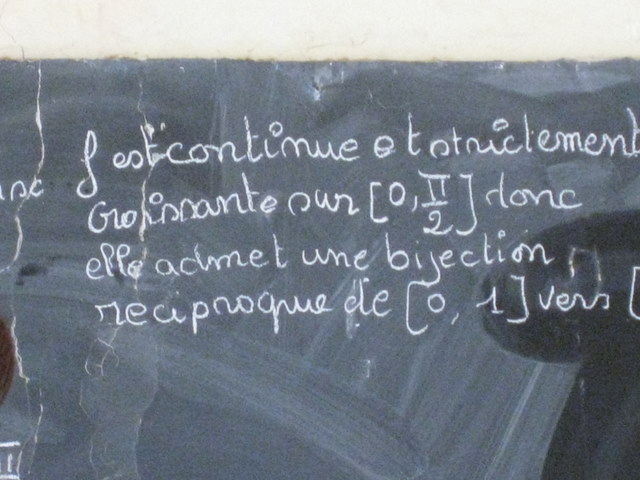 f est continue et strictement
croissante sur [0, π/2] donc
elle admet une bijection
reciproque de [0, 1] vers [